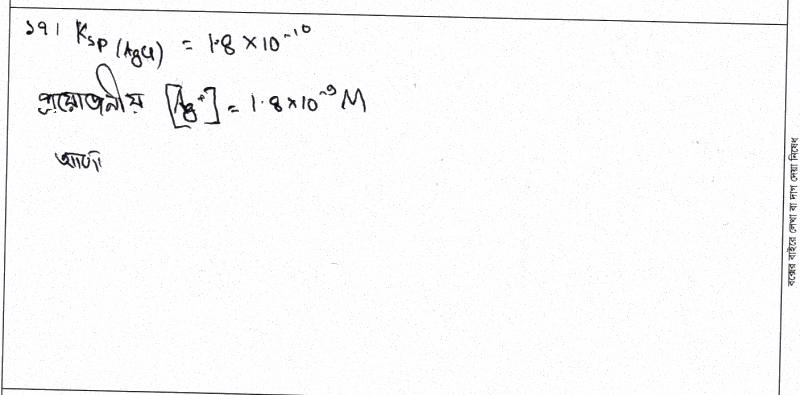 ১৭। Ksp (AgCl) = 1.8 × 10⁻¹⁰
প্রয়োজনীয় [Ag⁺] = 1.8 × 10⁻⁹ M
বক্সের বাইরে লেখা বা দাগ দেয়া নিষেধ